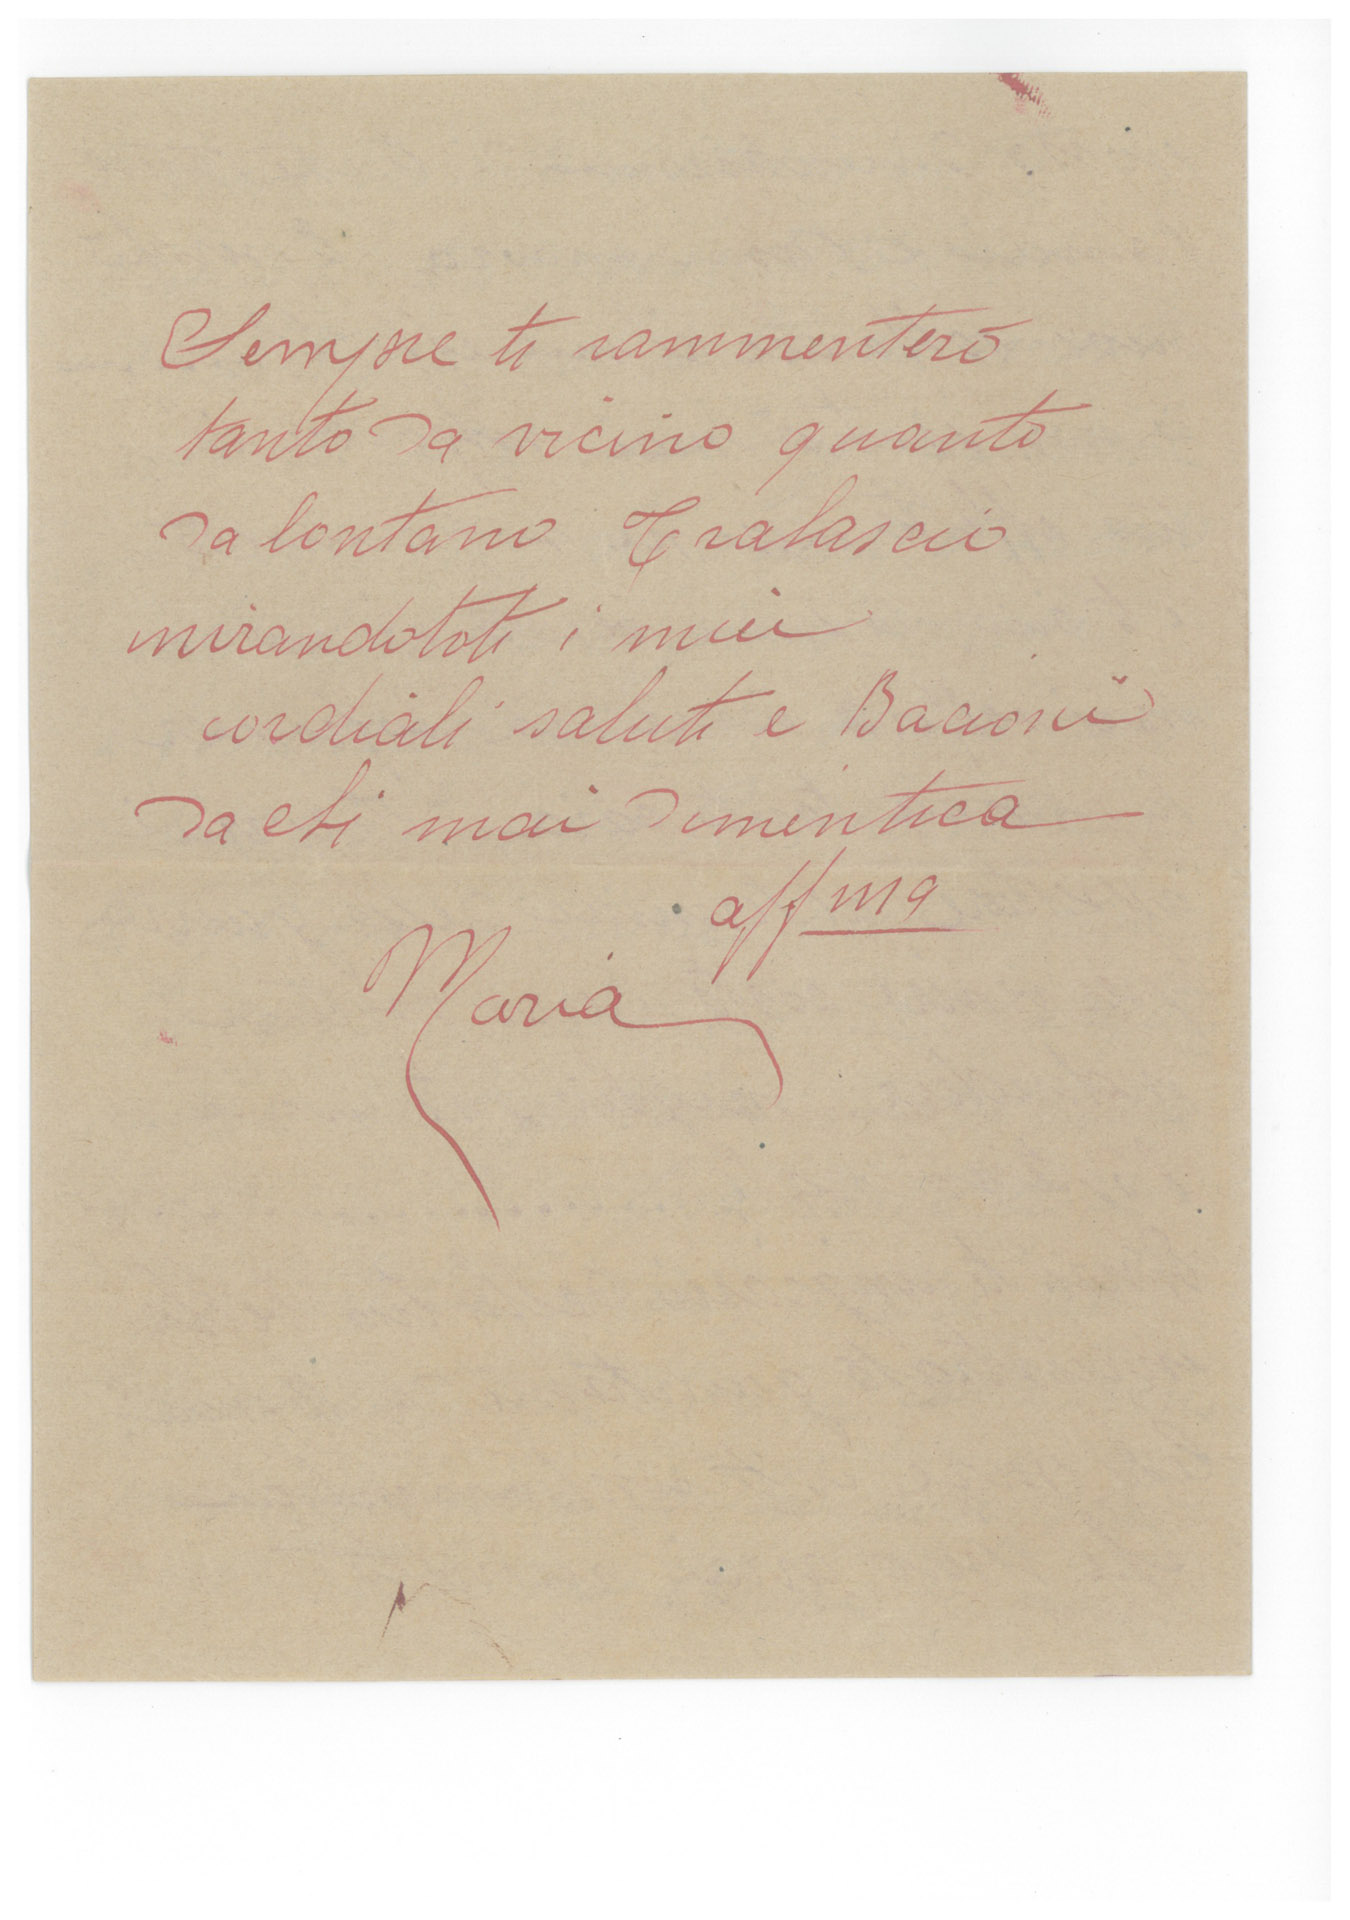 Sempre ti rammenterò
tanto da vicino quanto
da lontano Tralascio
i miei
cordiali saluti e Bacioni
da chi mai dimentica
affma
Maria